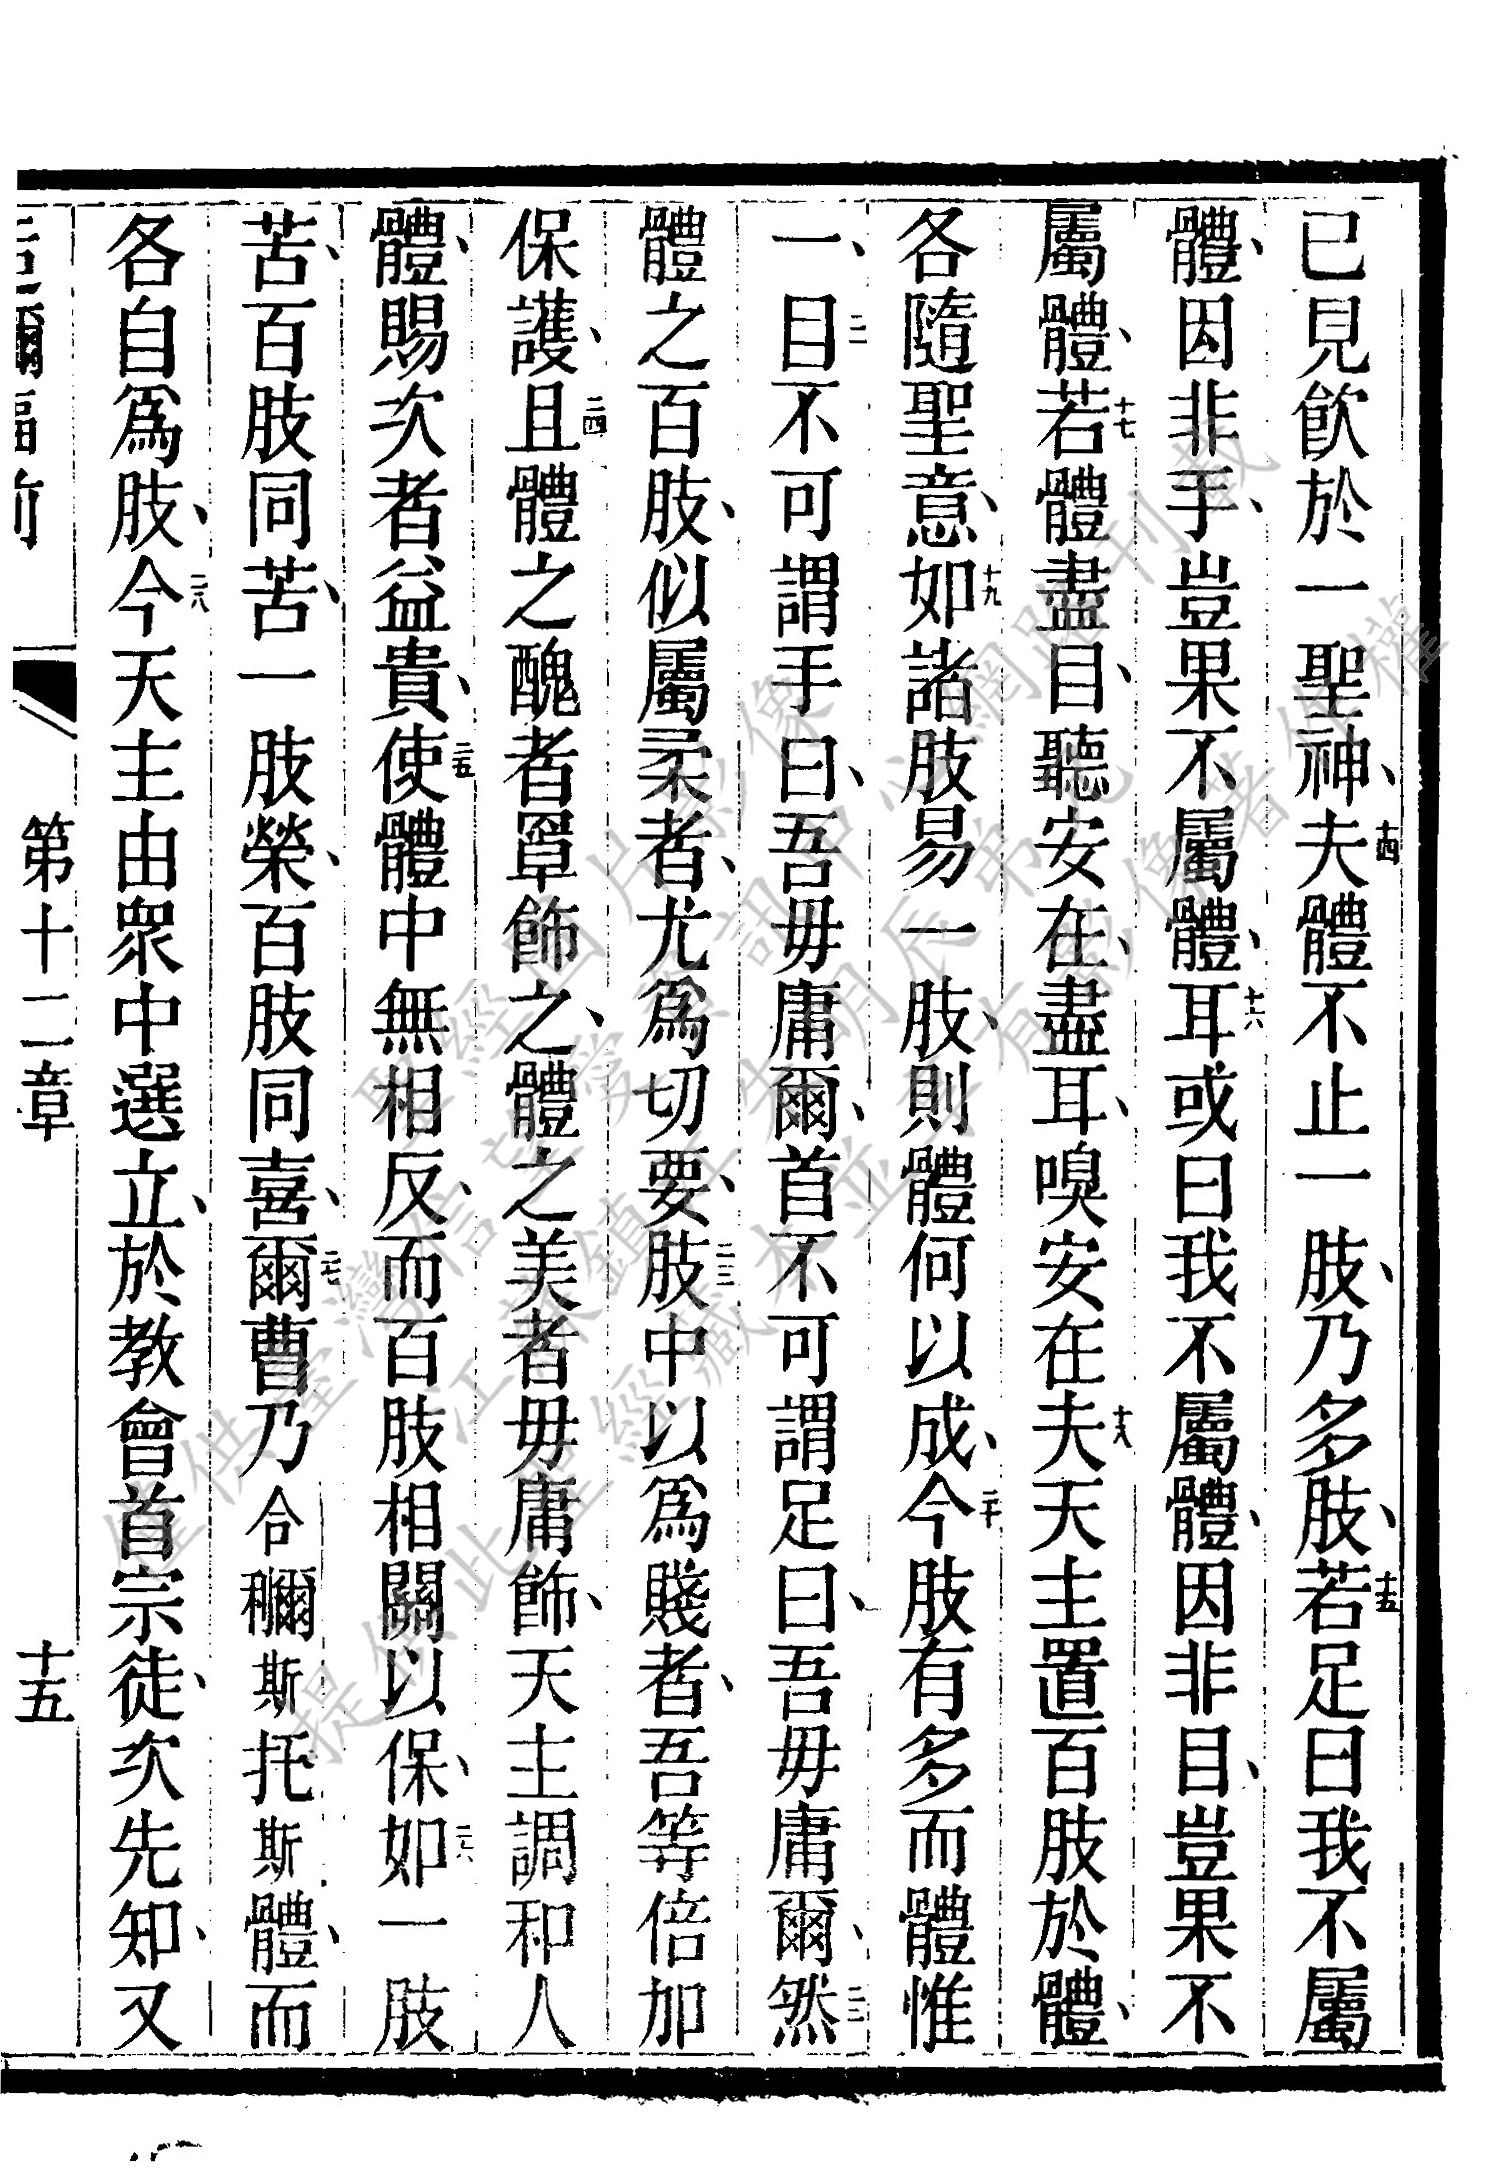 已見飲於一聖神、十四夫體不止一肢、乃多肢、十五若足曰我不屬
體、因非手、豈果不屬體、十六耳或曰我不屬體、因非目、豈果不
屬體、十七若體盡目、聽安在、盡耳、嗅安在、十八夫天主置百肢於體、
各隨聖意、十九如諸肢易一肢、則體何以成、二十今肢有多而體惟
一、二一目不可謂手曰、吾毋庸爾、首不可謂足曰、吾毋庸爾、二二然
體之百肢、似屬柔者、尤爲切要、二三肢中以爲賤者、吾等倍加
保護、二四且體之醜者罩飾之、體之美者毋庸飾、天主調和人
體、賜次者益貴、二五使體中無相反、而百肢相關以保、二六如一肢
苦、百肢同苦、一肢榮、百肢同喜、二七爾曹乃合穪斯托斯體、而
各自爲肢、二八今天主由眾中選立、於教會首宗徒、次先知、又
第十二章
十五
僅供臺灣信望愛